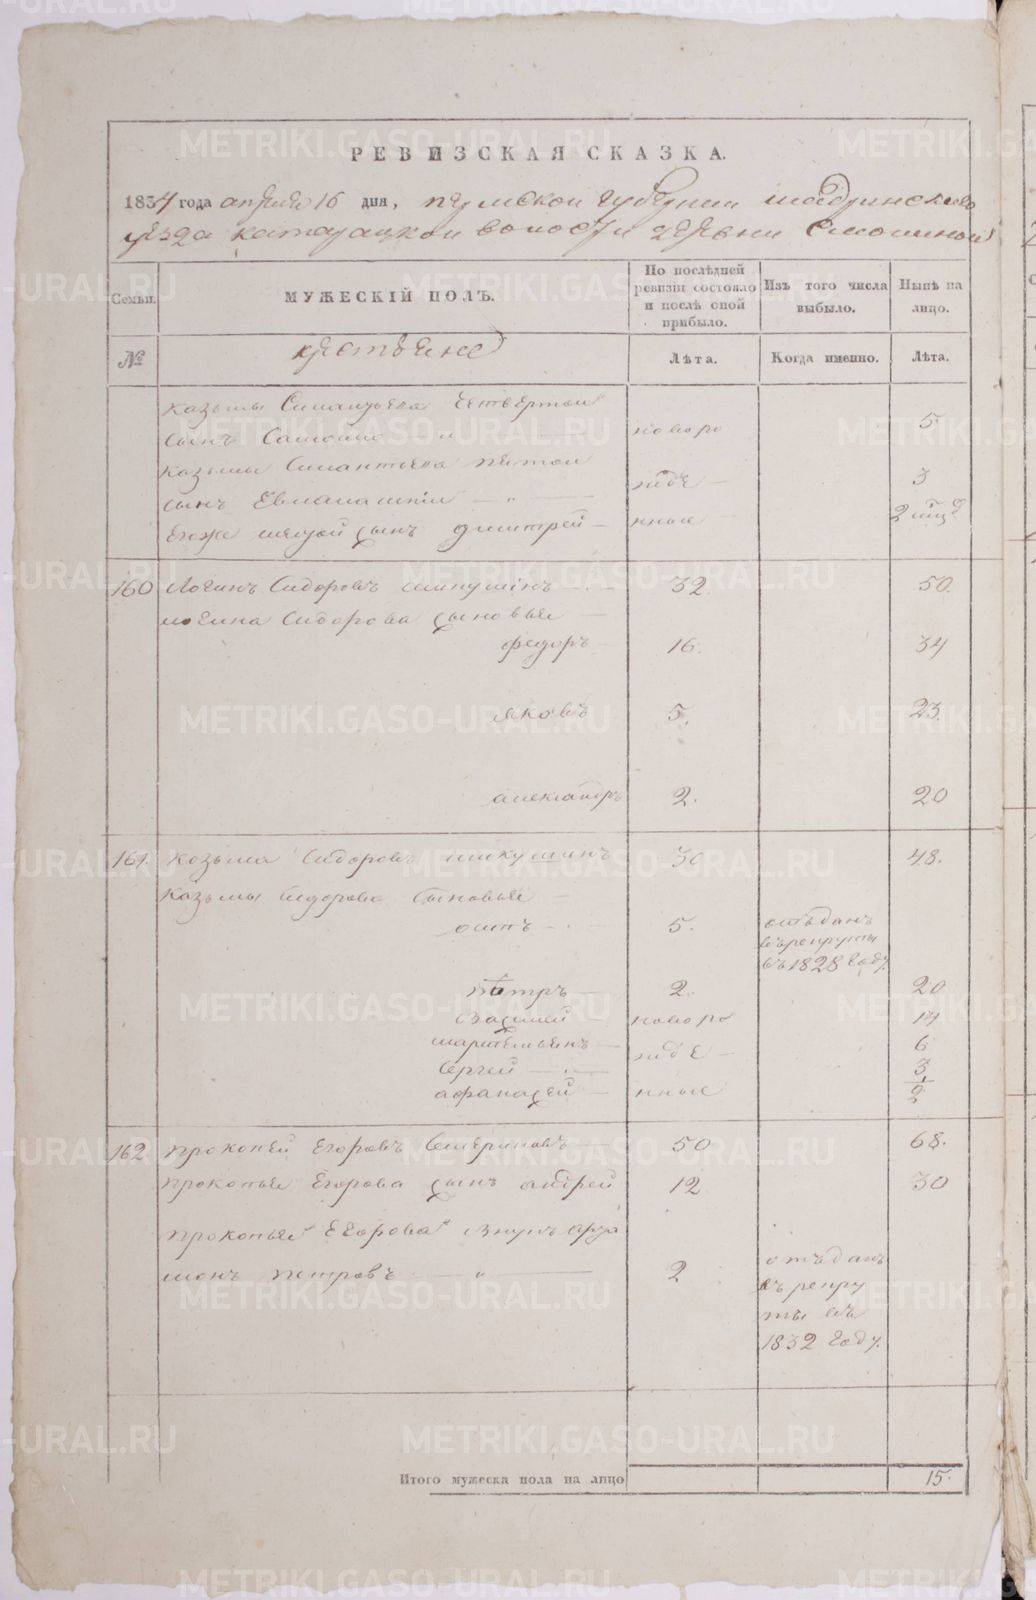 РЕВИЗСКАЯ СКАЗКА.
1834 года апреля 16 дня, пермской губернии шадринского
уезда катайской волости деревни
Семьи.
МУЖЕСКІЙ ПОЛЪ.
По послѣдней ревизіи состояло и послѣ оной прибыло.
Изъ того числа выбыло.
Нынѣ на лицо.
№
крестьяне
Лѣта.
Когда именно.
Лѣта.
козьмы четвертой
сынъ 5
новоро
козьмы пятой
сынъ 3
жде
Егоже шестой сынъ дмитрей нные 2
160 Логинъ Сидоровъ 32 50.
логина Сидорова сыновья
федоръ 16. 34
яковъ 5. 23.
александръ 2. 20
161. козьма Сидоровъ 30 48.
козьмы сидорова сыновья
осипъ 5. отъданъ
въ рекруты
въ 1828 году.
петръ 2. 20
василей новоро 14
6
жде
сергей 3
афанасей нные 2
162 прокопей Егоровъ 50 68.
прокопья Егорова сынъ андрей 12 30
прокопья Егорова внукъ арта
монъ петровъ 2 отъданъ
въ рекру
ты въ
1832 году.
Итого мужеска пола на лицо 15.
METRIKI.GASO-URAL.RU